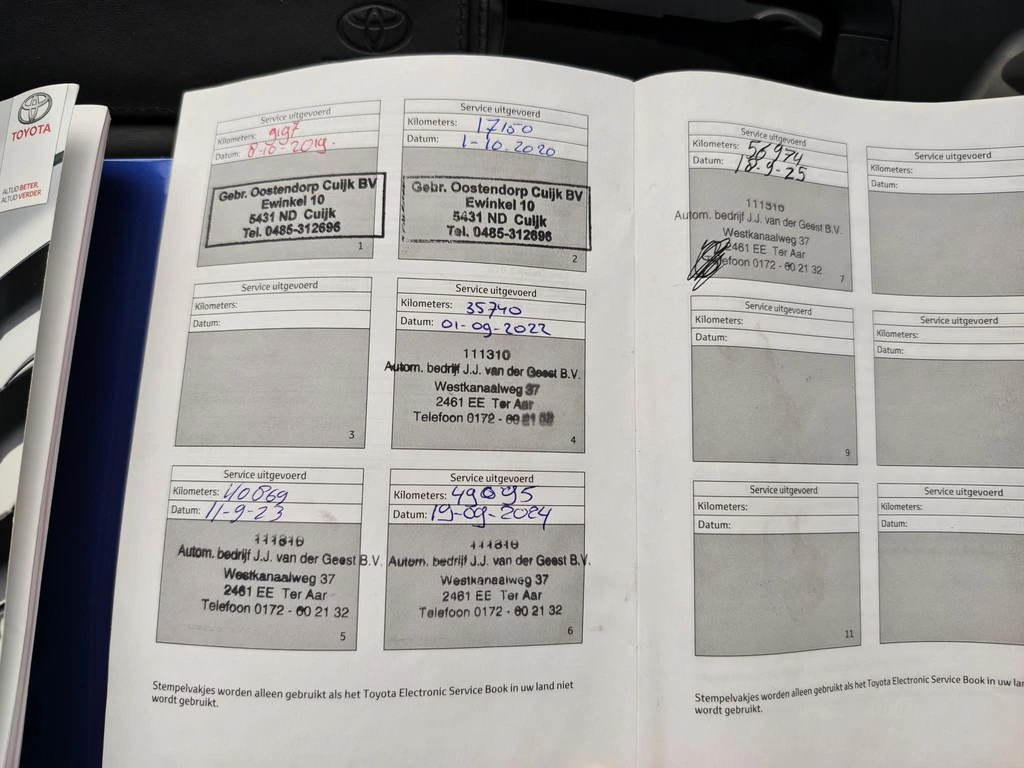 TOYOTA
ALTIJD BETER,
ALTIJD VERDER
Service uitgevoerd
Kilometers: 9197
Datum: 8-10-2019.
Gebr. Oostendorp Cuijk BV
Ewinkel 10
5431 ND Cuijk
Tel. 0485-312696
1
Service uitgevoerd
Kilometers: 17150
Datum: 1-10.2020
Gebr. Oostendorp Cuijk BV
Ewinkel 10
5431 ND Cuijk
Tel. 0485-312696
2
Service uitgevoerd
Kilometers:
Datum:
3
Service uitgevoerd
Kilometers: 35740
Datum: 01-09-2022
111310
Autom. bedrijf J.J. van der Geest B.V.
Westkanaalweg 37
2461 EE Ter Aar
Telefoon 0172 - 60 21 32
4
Service uitgevoerd
Kilometers: 40869
Datum: 11-9-23
111310
Autom. bedrijf J.J. van der Geest B.V.
Westkanaalweg 37
2461 EE Ter Aar
Telefoon 0172 - 60 21 32
5
Service uitgevoerd
Kilometers: 49095
Datum: 19-09-2024
111310
Autom. bedrijf J.J. van der Geest B.V.
Westkanaalweg 37
2461 EE Ter Aar
Telefoon 0172 - 60 21 32
6
Stempelvakjes worden alleen gebruikt als het Toyota Electronic Service Book in uw land niet
wordt gebruikt.
Service uitgevoerd
Kilometers: 56974
Datum: 18-9-25
111310
Autom. bedrijf J.J. van der Geest B.V.
Westkanaalweg 37
2461 EE Ter Aar
Telefoon 0172 - 60 21 32
7
Service uitgevoerd
Kilometers:
Datum:
Service uitgevoerd
Kilometers:
Datum:
9
Service uitgevoerd
Kilometers:
Datum:
Service uitgevoerd
Kilometers:
Datum:
11
Service uitgevoerd
Kilometers:
Datum:
Stempelvakjes worden alleen gebruikt als het Toyota Electronic Service Book in uw lan
wordt gebruikt.